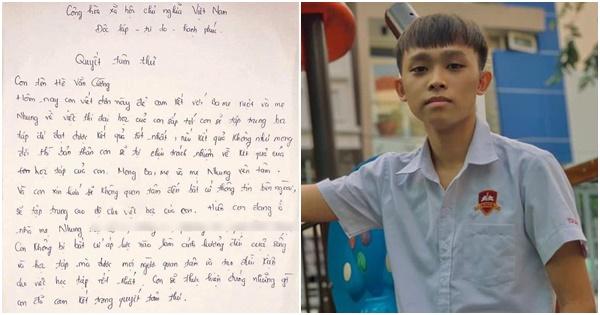 Cộng hòa xã hội chủ nghĩa Việt Nam
Độc lập - tự do - hạnh phúc.
Quyết tâm thư
Con tên Hồ Văn Cường
Hôm nay con viết đơn này để cam kết với ba mẹ ruột và mẹ
Nhung về việc thi đại học của con sắp tới con sẽ tập trung học
tập để đạt được kết quả tốt nhất, nếu kết quả không như mong
đợi thì bản thân con sẽ tự chịu trách nhiệm về kết quả của
học tập của con. Mong ba, mẹ và mẹ Nhung yên tâm.
Và con xin hứa sẽ không quan tâm đến bất cứ thông tin bên ngoài,
sẽ tập trung cao độ cho việc học của con. Hiện con đang ở
nhà mẹ Nhung
Con không bị bất cứ áp lực nào làm ảnh hưởng đến cuộc sống
và học tập mà được mọi người quan tâm và tạo điều kiện
cho việc học tập tốt nhất. Con sẽ thực hiện đúng những gì
con đã cam kết trong quyết tâm thư.